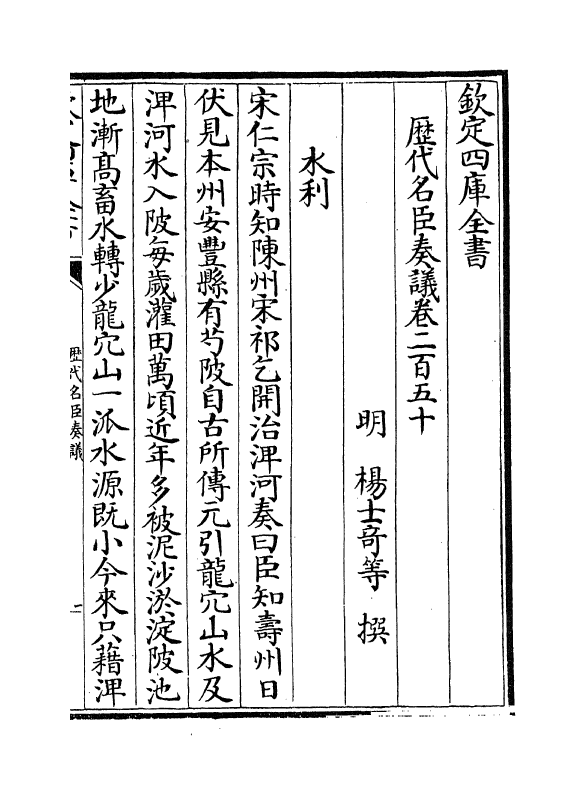 欽定四庫全書
歴代名臣奏議卷二百五十
明　楊士竒等　撰
水利
宋仁宗時知陳州宋祁乞開治淠河奏曰臣知壽州日
伏見本州安豐縣有芍陂自古所傳元引龍穴山水及
淠河水入陂每歲灌田萬頃近年多被泥沙淤淀陂池
地漸髙畜水轉少龍穴山一派水源既小今來只藉淠
歴代名臣奏議
一